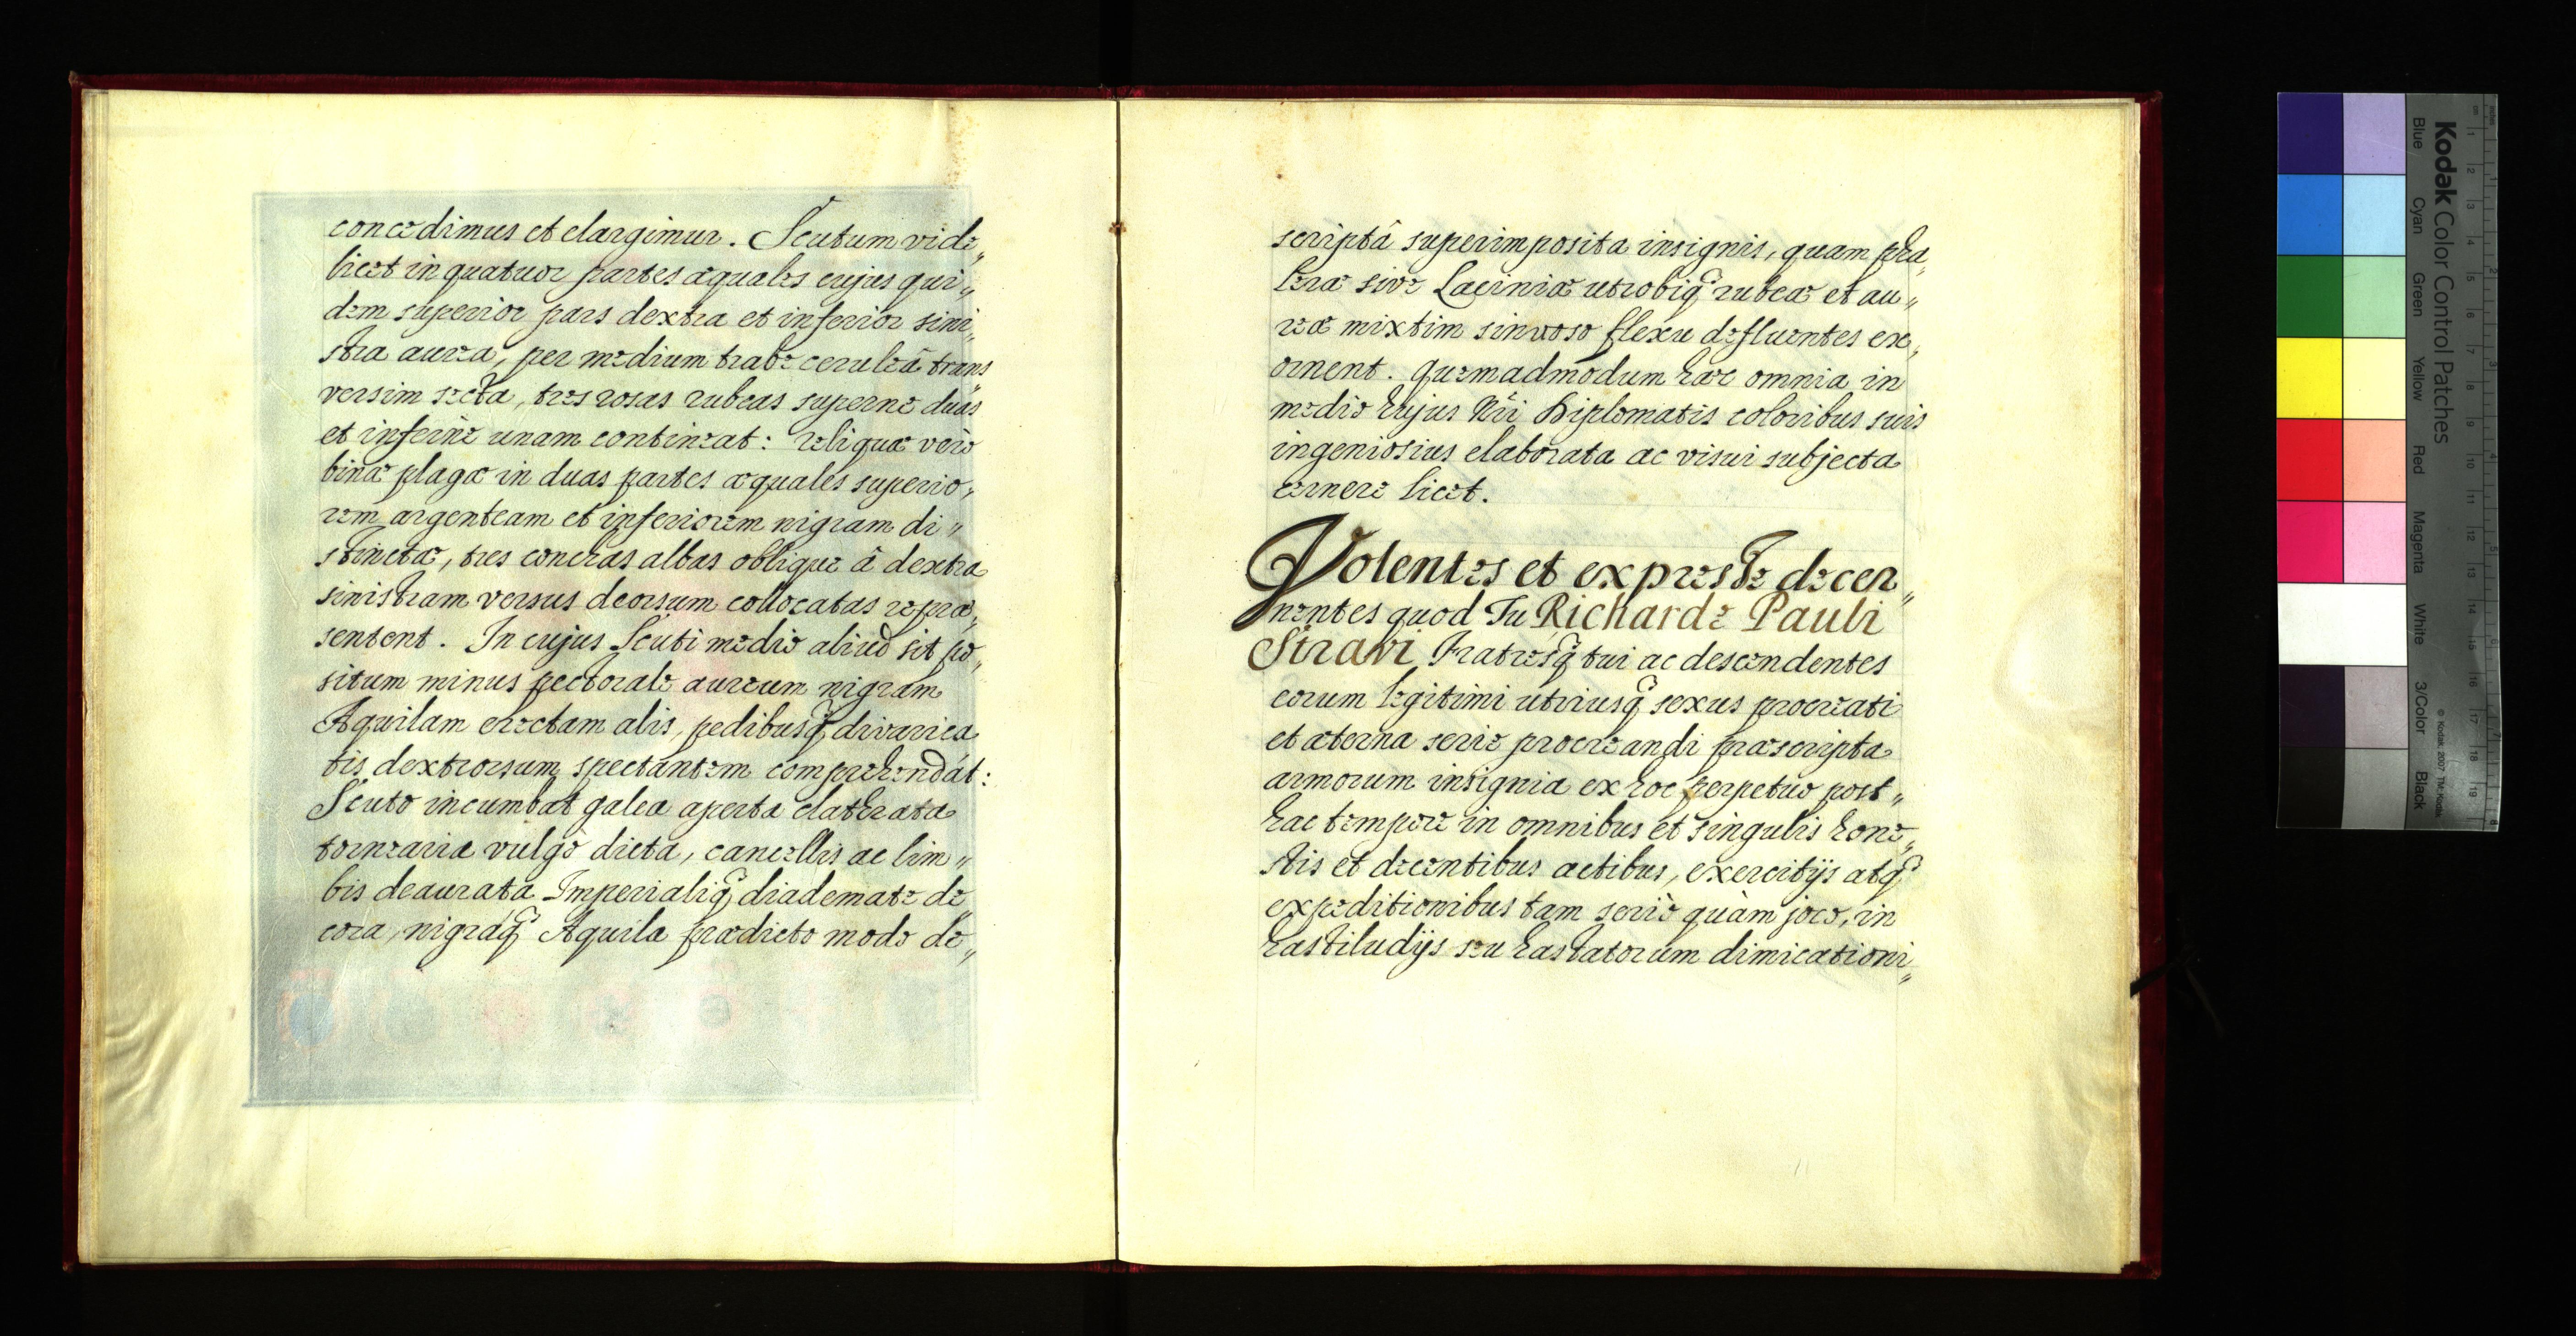 concedimus et elargimur. Scutum vide„
licet in quatuor partes æquales cujus qui„
dem superior pars dextra et inferior sini„
stra aurea, per medium trabe ceruleâ trans„
versim secta, tres rosas rubeas superne duas
et inferne unam contineat: reliquæ verò
binæ plagæ in duas partes æquales superio„
rem argenteam et inferiorem nigram di„
stinctæ, tres conchas albas oblique â dextra
sinistram versus deorsum collocatas repræ„
sentent. In cujus Scuti medio aliud sit po„
situm minus pectorale aureum nigram
Aquilam erectam alis, pedibusq̃ divarica
tis dextrorsum spectantem comprehendat:
Scuto incumbat galea aperta clathrata
tornearia vulgò dicta, cancellis ac lim„
bis deaurata Imperialiq̃ diademate de
cora, nigráq̃ Aquila prædicto modo de„
scriptâ superimposita insignis, quam pha„
leræ sive Laciniæ utrobiq̃ rubeæ et au„
reæ mixtim sinuoso flexu defluentes ex„
ornent. Quemadmodum hæc omnia in
medio hujus Nr̃i Diplomatis coloribus suis
ingeniosius elaborata ac visui subjecta
cernere licet.
Volentes et expresse decer„
nentes quod Tu Richarde Pauli
Stravi Fratresq̃ tui ac descendentes
eorum legitimi utriusq̃ sexus procreati
et æterna serie procreandi præscripta
armorum insignia ex hoc perpetuo post„
hac tempore in omnibus et singulis hone„
stis et decentibus actibus, exercitijs atq̃
expeditionibus tam seriò quàm joco, in
hastiludijs seu hastatorum dimicationi„
Kodak Color Control Patches
Blue
Cyan
Green
Yellow
Red
Magenta
White
3/Color
Black
© Kodak, 2007 TM: Kodak